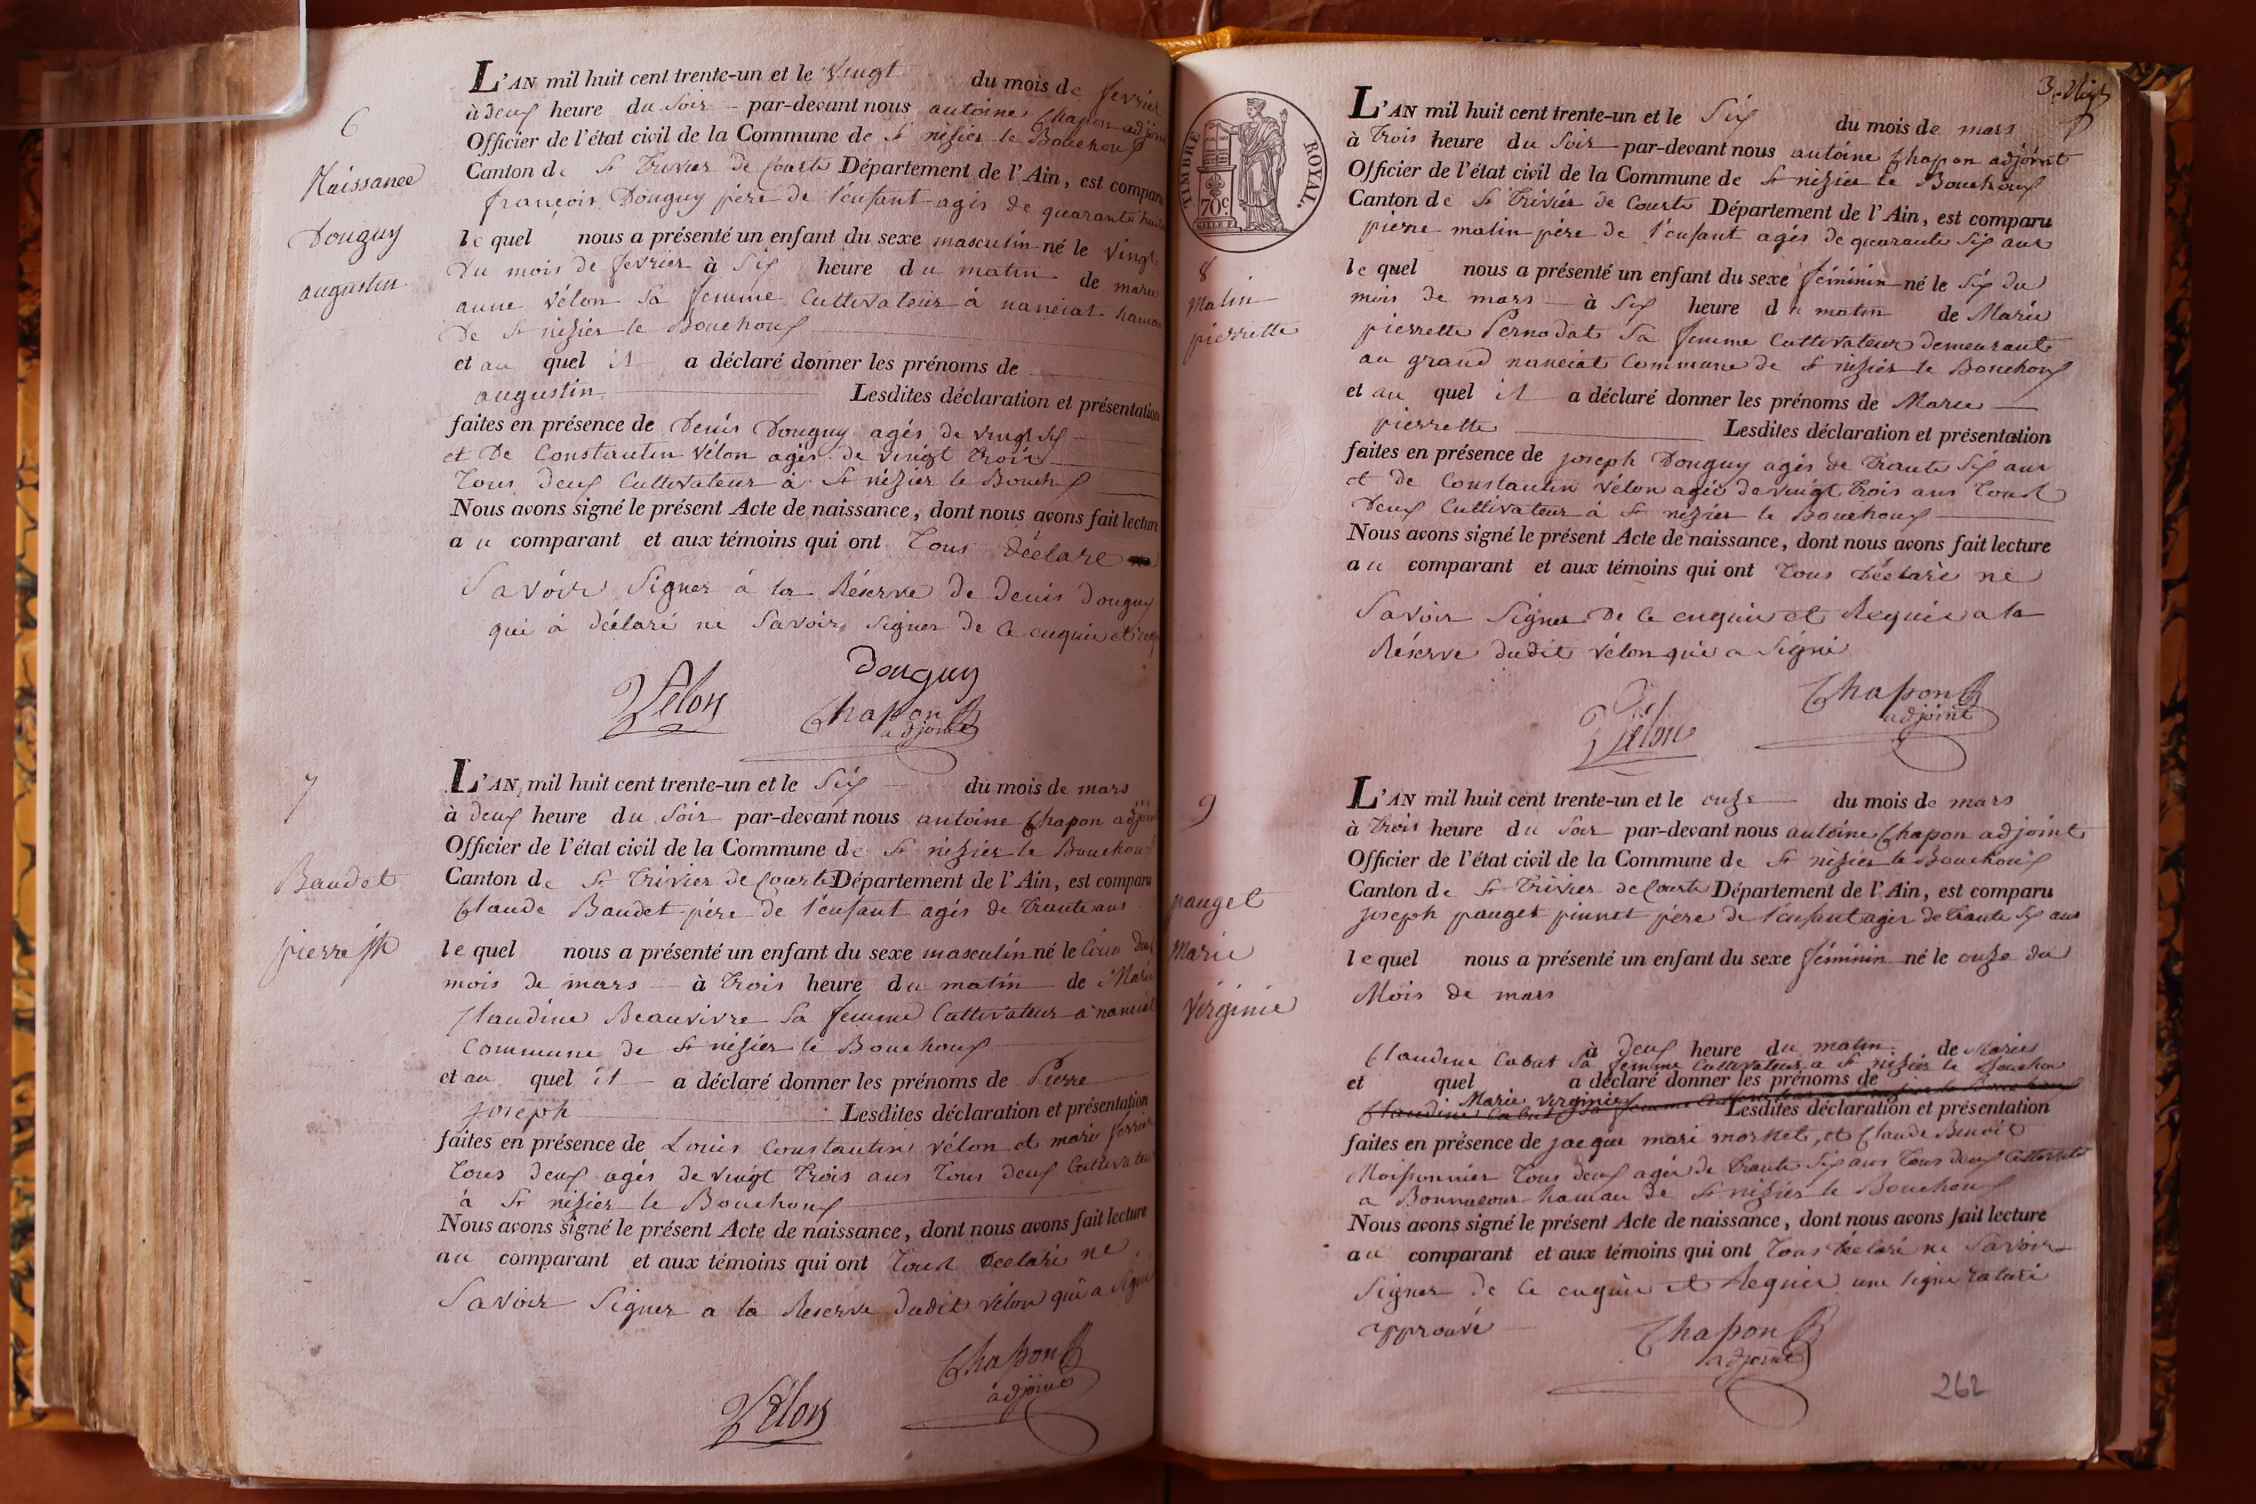 6
Naissance
Douguy
augustin
L'AN mil huit cent trente-un et le vingt du mois de fevrier
à deux heure du Soir par-devant nous antoine Chapon adjoint
Officier de l'état civil de la Commune de St nizier le Bouchoux
Canton de St Trivier de Courte Département de l'Ain, est comparu
françois Douguy père de l'enfant agés de quarante huit
lequel nous a présenté un enfant du sexe masculin né le vingt
Du mois de fevrier à Six heure du matin de marie
anne vélon Sa femme Cultivateur à nanciat hamau
De St nizier le Bouchoux
et au quel il a déclaré donner les prénoms de
augustin Lesdites déclaration et présentation
faites en présence de Denis Douguy agés de vingt Six
et De Constantin vélon agés de vingt trois
Tous deux Cultivateur à St nizier le Bouchx
Nous avons signé le présent Acte de naissance, dont nous avons fait lecture
au comparant et aux témoins qui ont Tous Déclare
Savoir Signer à la Réserve de denis douguy
qui à déclaré ne Savoir Signer de ce enquie et
Vélon
douguy
Chapon
adjoint
7
Baudet
pierre jph
L'AN mil huit cent trente-un et le Six du mois de mars
à deux heure du Soir par-devant nous antoine Chapon adjoint
Officier de l'état civil de la Commune de St nizier le Bouchoux
Canton de St Trivier de Courte Département de l'Ain, est comparu
Claude Baudet père de l'enfant agés de Trante ans
lequel nous a présenté un enfant du sexe masculin né le du
mois de mars à Trois heure du matin de Marie
Claudine Beauvivre Sa femme Cultivateur a nanciat
Commune de St nizier le Bouchoux
et au quel il a déclaré donner les prénoms de Pierre
joseph Lesdites déclaration et présentation
faites en présence de Louis Constantin vélon et mari
Tous deux agés de vingt trois ans Tous deux Cultivateur
à St nizier le Bouchoux
Nous avons signé le présent Acte de naissance, dont nous avons fait lecture
au comparant et aux témoins qui ont Tous Déclaré ne
Savoir Signer a la Reserve dudit vélon qui a Signé
Chapon
adjoint
Vélon
3e
TIMBRE ROYAL.
70c
8
Matin
pierrette
L'AN mil huit cent trente-un et le Six du mois de mars
à Trois heure du Soir par-devant nous antoine Chapon adjoint
Officier de l'état civil de la Commune de St nizier le Bouchoux
Canton de St Trivier de Courte Département de l'Ain, est comparu
pierre matin père de l'enfant agés de quarante Six ans
lequel nous a présenté un enfant du sexe féminin né le Six du
mois de mars à Six heure du matin de Marie
pierrette Pernodat Sa femme Cultivateur demeurant
au grand nanciat Commune de St nizier le Bouchoux
et au quel il a déclaré donner les prénoms de Marie
pierrette Lesdites déclaration et présentation
faites en présence de joseph Douguy agés de Trante Six ans
et de Constantin vélon agés de vingt trois ans Tous
Deux Cultivateur à St nizier le Bouchoux
Nous avons signé le présent Acte de naissance, dont nous avons fait lecture
au comparant et aux témoins qui ont Tous Déclaré ne
Savoir Signer De ce enquie et Requie a la
Réserve dudit vélon qui a Signé
Chapon
adjoint
Vélon
9
pauget
Marie
virginie
L'AN mil huit cent trente-un et le onze du mois de mars
à Trois heure du Soir par-devant nous antoine Chapon adjoint
Officier de l'état civil de la Commune de St nizier le Bouchoux
Canton de St Trivier de Courte Département de l'Ain, est comparu
joseph pauget pinnet père de l'enfant agés de Trante Six ans
lequel nous a présenté un enfant du sexe féminin né le onze du
Mois de mars
à deux heure du matin de Marie
Claudine Cabut Sa femme Cultivateur a St nizier le Bouchou
et quel a déclaré donner les prénoms de
Marie virginie
Claudine Cabut Sa femme Lesdites déclaration et présentation
faites en présence de jacque mari morttet, et Claude Benoit
Moissonnier Tous deux agés de Trante Six ans Tous deux Cultivateur
a Bonnacour hamau de St nizier le Bouchoux
Nous avons signé le présent Acte de naissance, dont nous avons fait lecture
au comparant et aux témoins qui ont Tous Déclaré ne Savoir
Signer de ce enquie et Requie une ligne raturé
approuvé
Chapon
adjoint
262